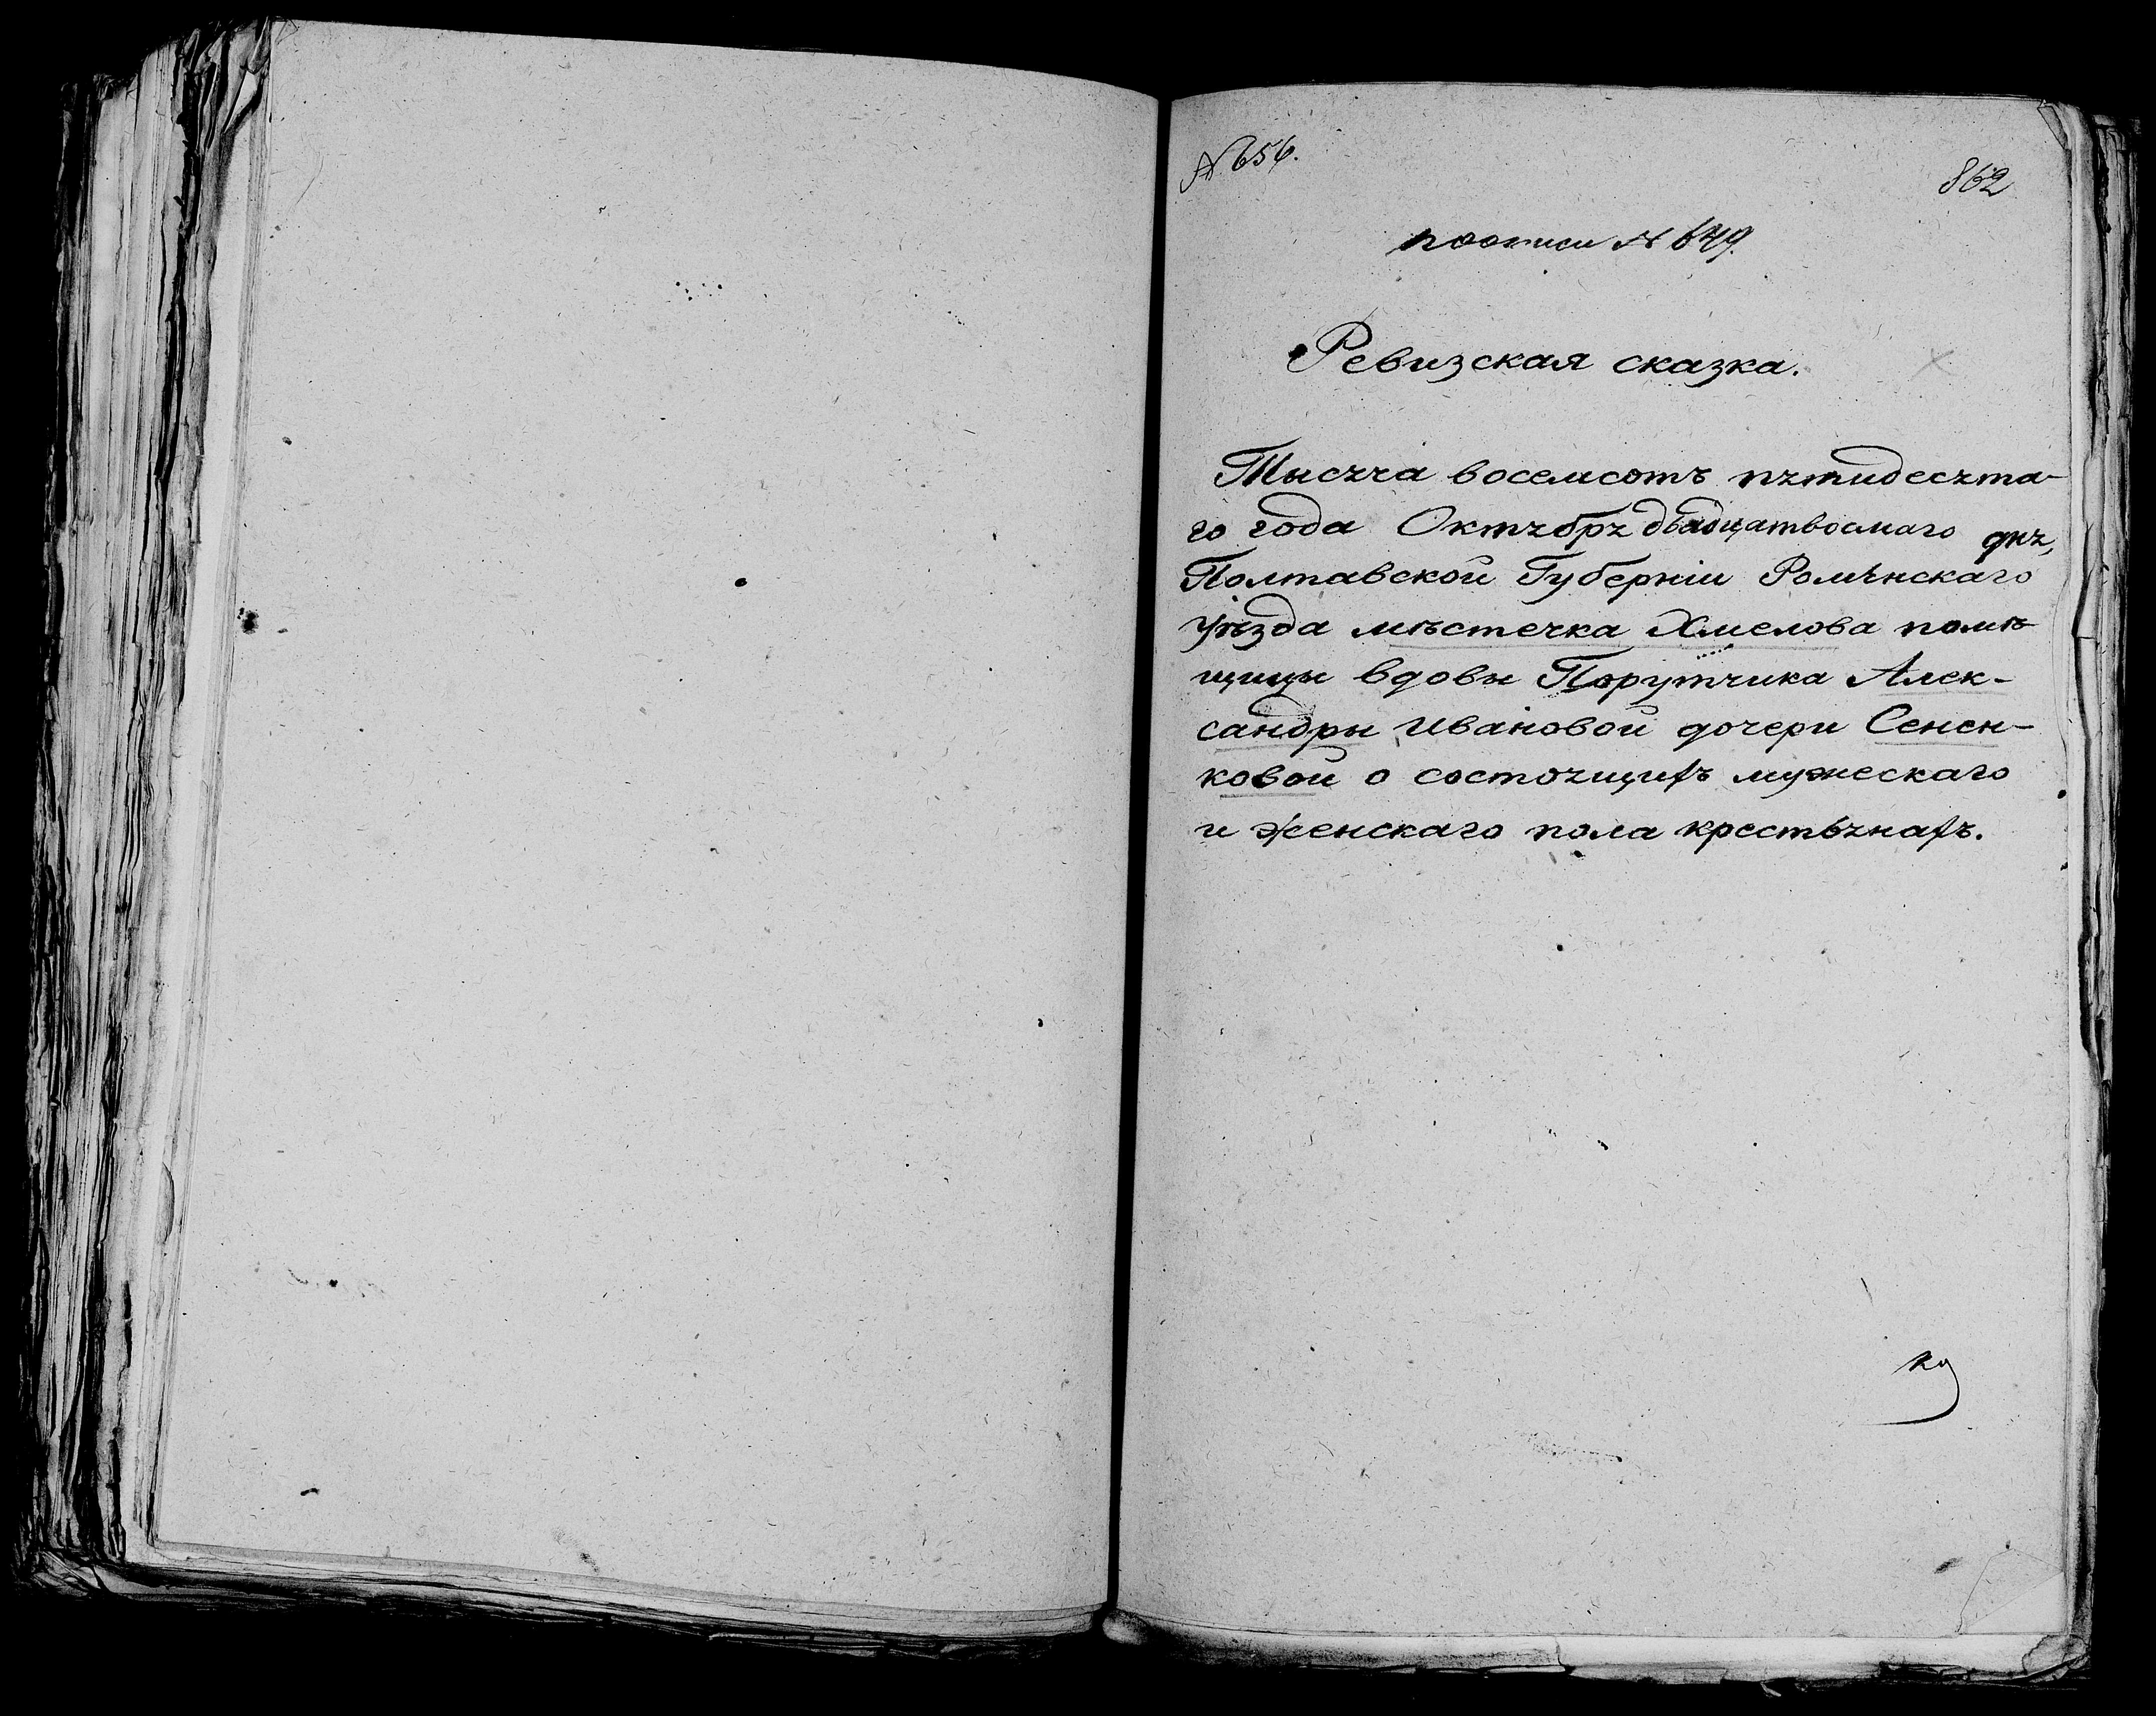 № 656.
862
по описи № 649.
Ревизская сказка.
Тысяча восемсотъ пятидесята-
го года Октября двадцатвосмаго дня,
Полтавской Губерніи Роменскаго
уѣзда мѣстечка Хмелова помѣ
щицы вдовы Порутчика Алек-
сандры Ивановой дочери Сенен-
ковой о состоящихъ мужескаго
и женскаго пола крестьянахъ.